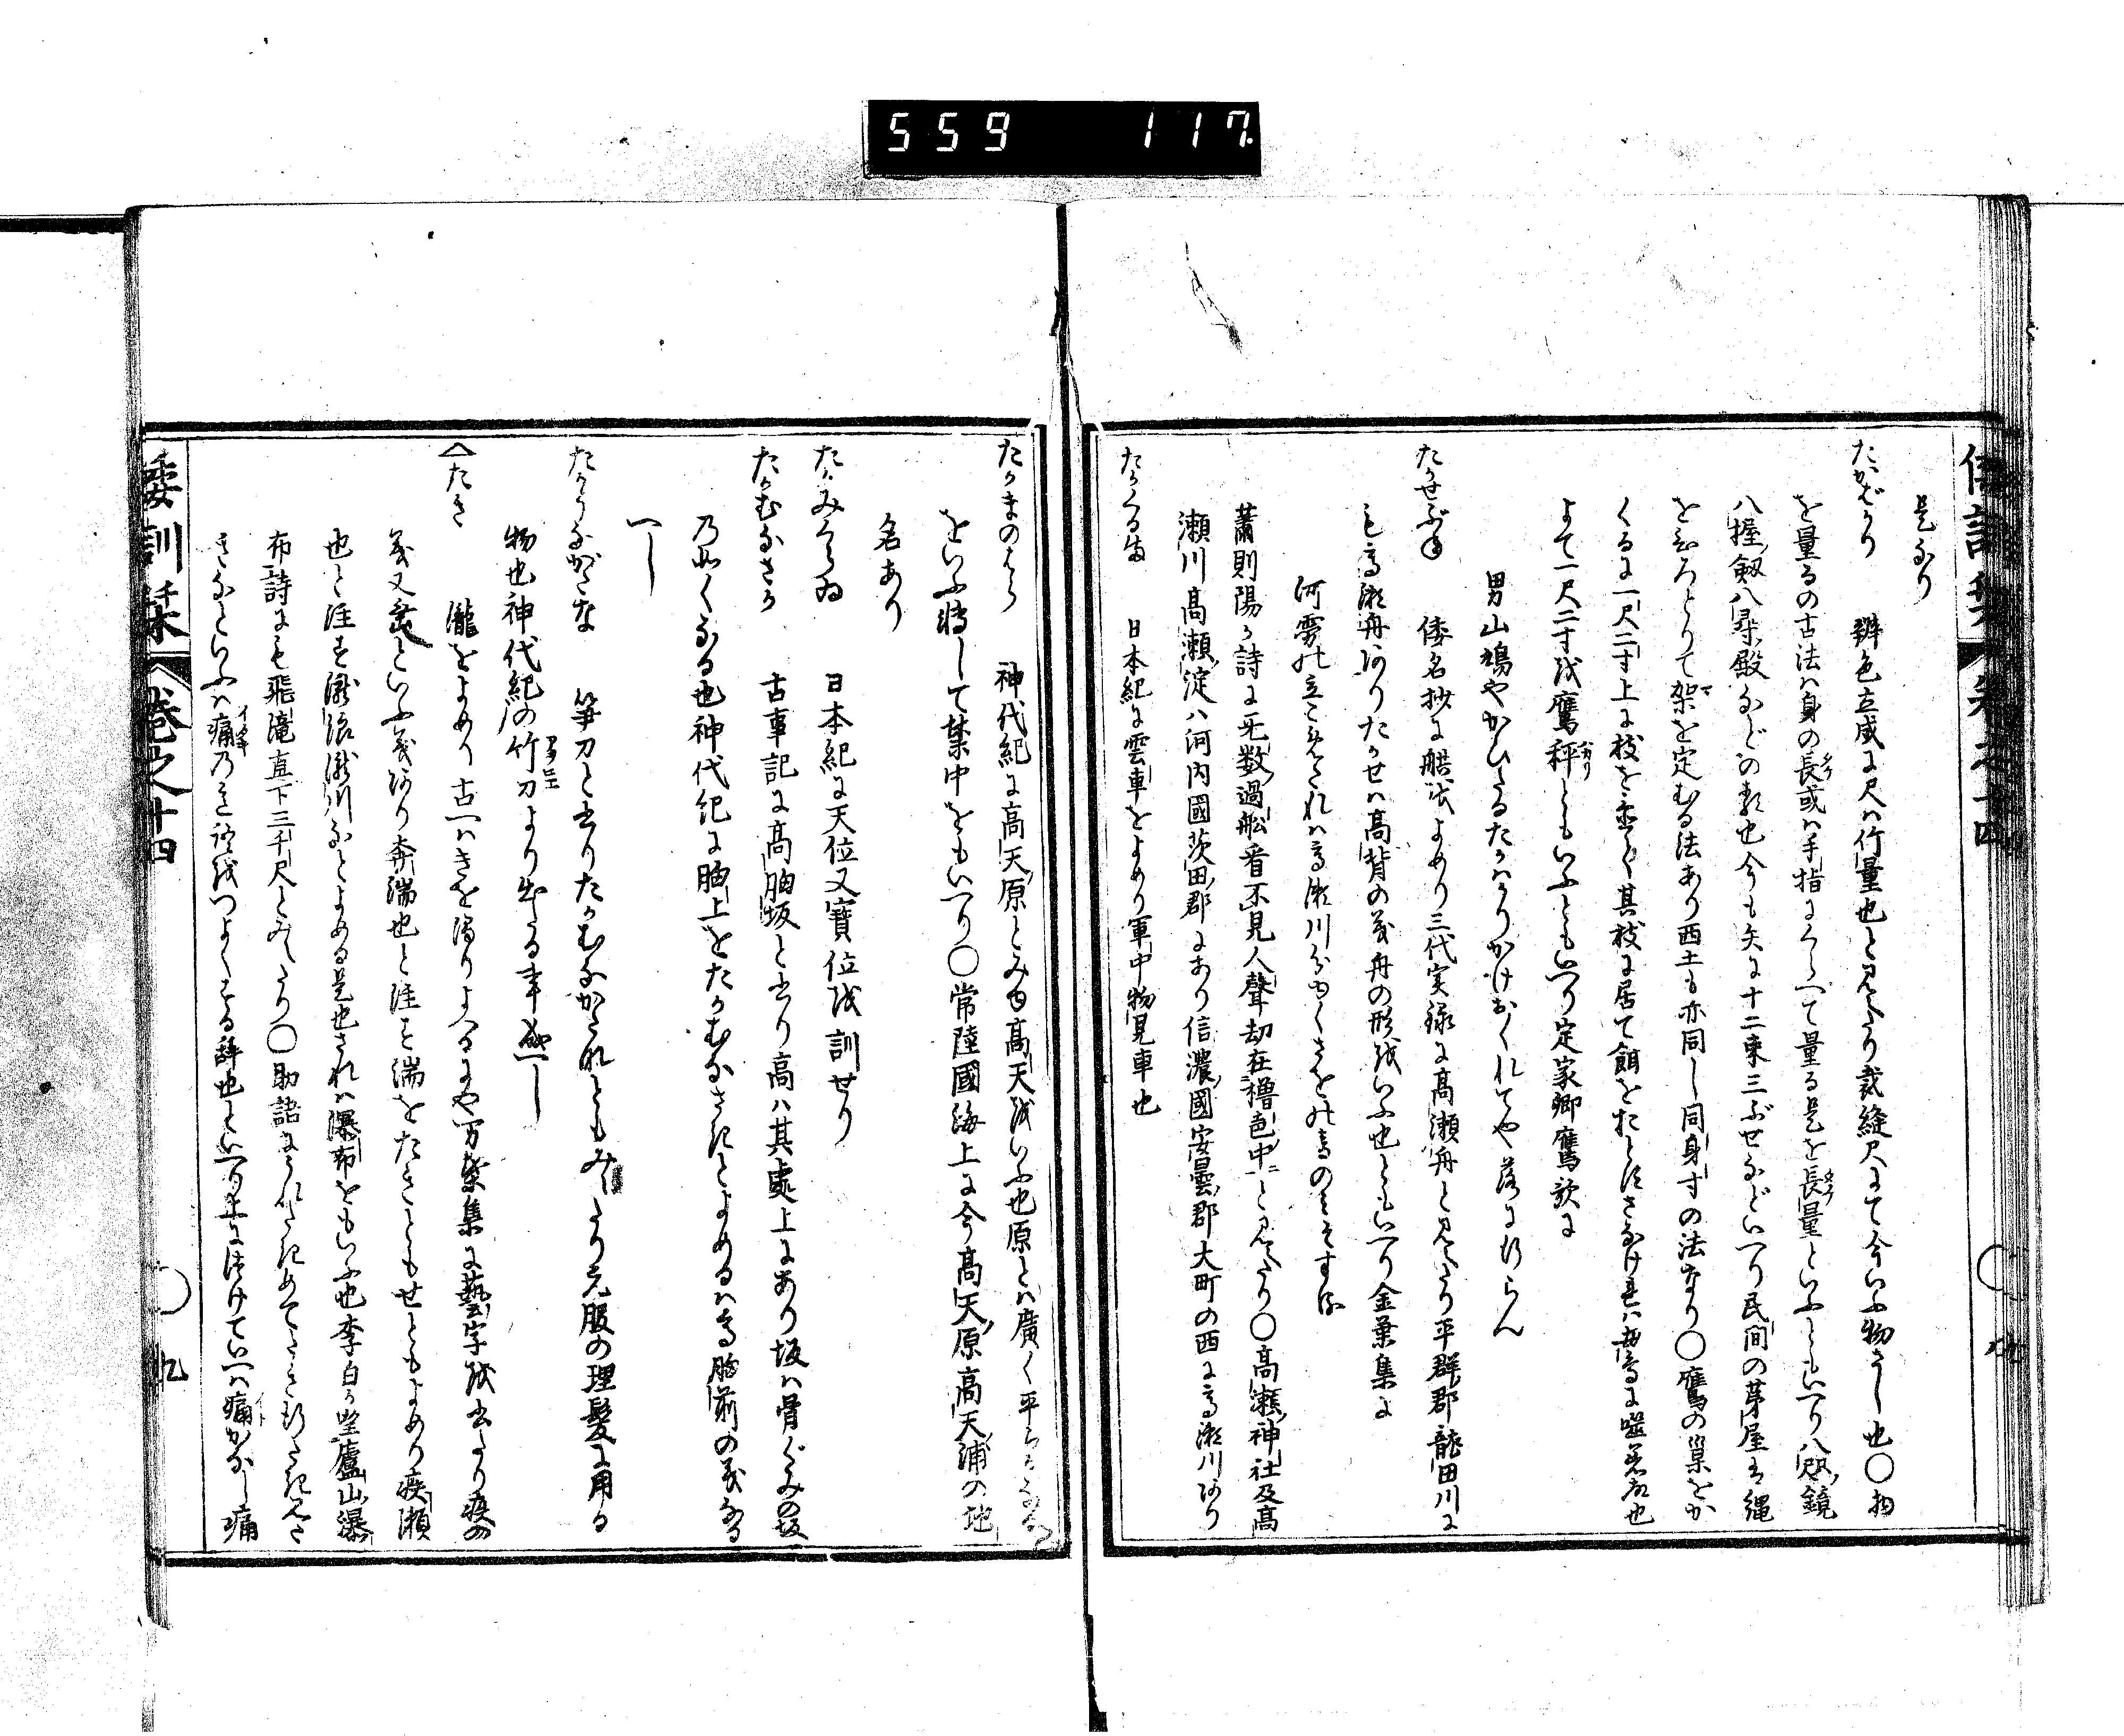 559 117
是なり
たかばかり 辨色立成に尺ハ竹量也と見えたり裁縫尺にて今いふ物さし也〇物
を量るの古法ハ身の長或ハ手指にくらべて量る是を長量といふともいへり八咫鏡
八握劔八尋殿などの類也今も矢に十二束三ぶせなどいへり民間の茅屋も縄
をむろとりて架を定むる法あり西土も亦同し同身寸の法なり〇鷹の巣をか
くるに一尺二寸上に枝を
よて一尺二寸を鷹秤ともいふともいへり定家卿鷹歌に
男山鳩やかひたるたかはかりかけおくれてや落に行らん
たかせぶね 倭名抄に艜をよめり三代実録に高瀬舟と見えたり平群郡龍田川に
も高瀬舟ありたかせハ高背の義舟の形をいふ也ともいへり金葉集に
河霧の立こめつれハ高瀬川分ゆくさをの音のミそする
蕭則陽か詩に无数過舩看不見人聲劫在櫓邑中と見えたり〇高瀬神社及高
瀬川高瀬淀ハ河内國茨田郡にあり信濃國安曇郡大町の西に高瀬川あり
たかくるま 日本紀に雲車をよめり軍中物見車也
たかまのはら 神代紀に高天原とみゆ高天をいふ也原とハ廣く平らる
をいふ轉して禁中をもいへり〇常陸國海上に今高天原高天浦の地
名あり
たかみくらゐ 日本紀に天位又寶位を訓せり
たかむなさか 古事記に高胸坂と書り高ハ其處上にあり坂ハ骨ぐみの坂
乃如くなる也神代紀に胸上をたかむなさきとよめるハ高胸前の義なる
へし
たかうながたな 笋刀と書りたかむながたなともみえたり元服の理髪に用る
物也神代紀の竹刀より出たる事成へし
たき 瀧をよめり古へハきを濁りよへるにや万葉集に藝字を書たり疾の
義又垂といふ義あり奔湍也と注し湍をたきともせともよめり疾瀬
也と注す瀧浪瀧川などよめる是也されハ瀑布をもいふ也李白か望廬山瀑
布詩にも飛滝直下三千尺とみえたり〇
きなといふハ痛乃を語をつよくする辞也といへり上に付けていへハ痛かなし痛
倭訓栞 巻之十四 〇 九